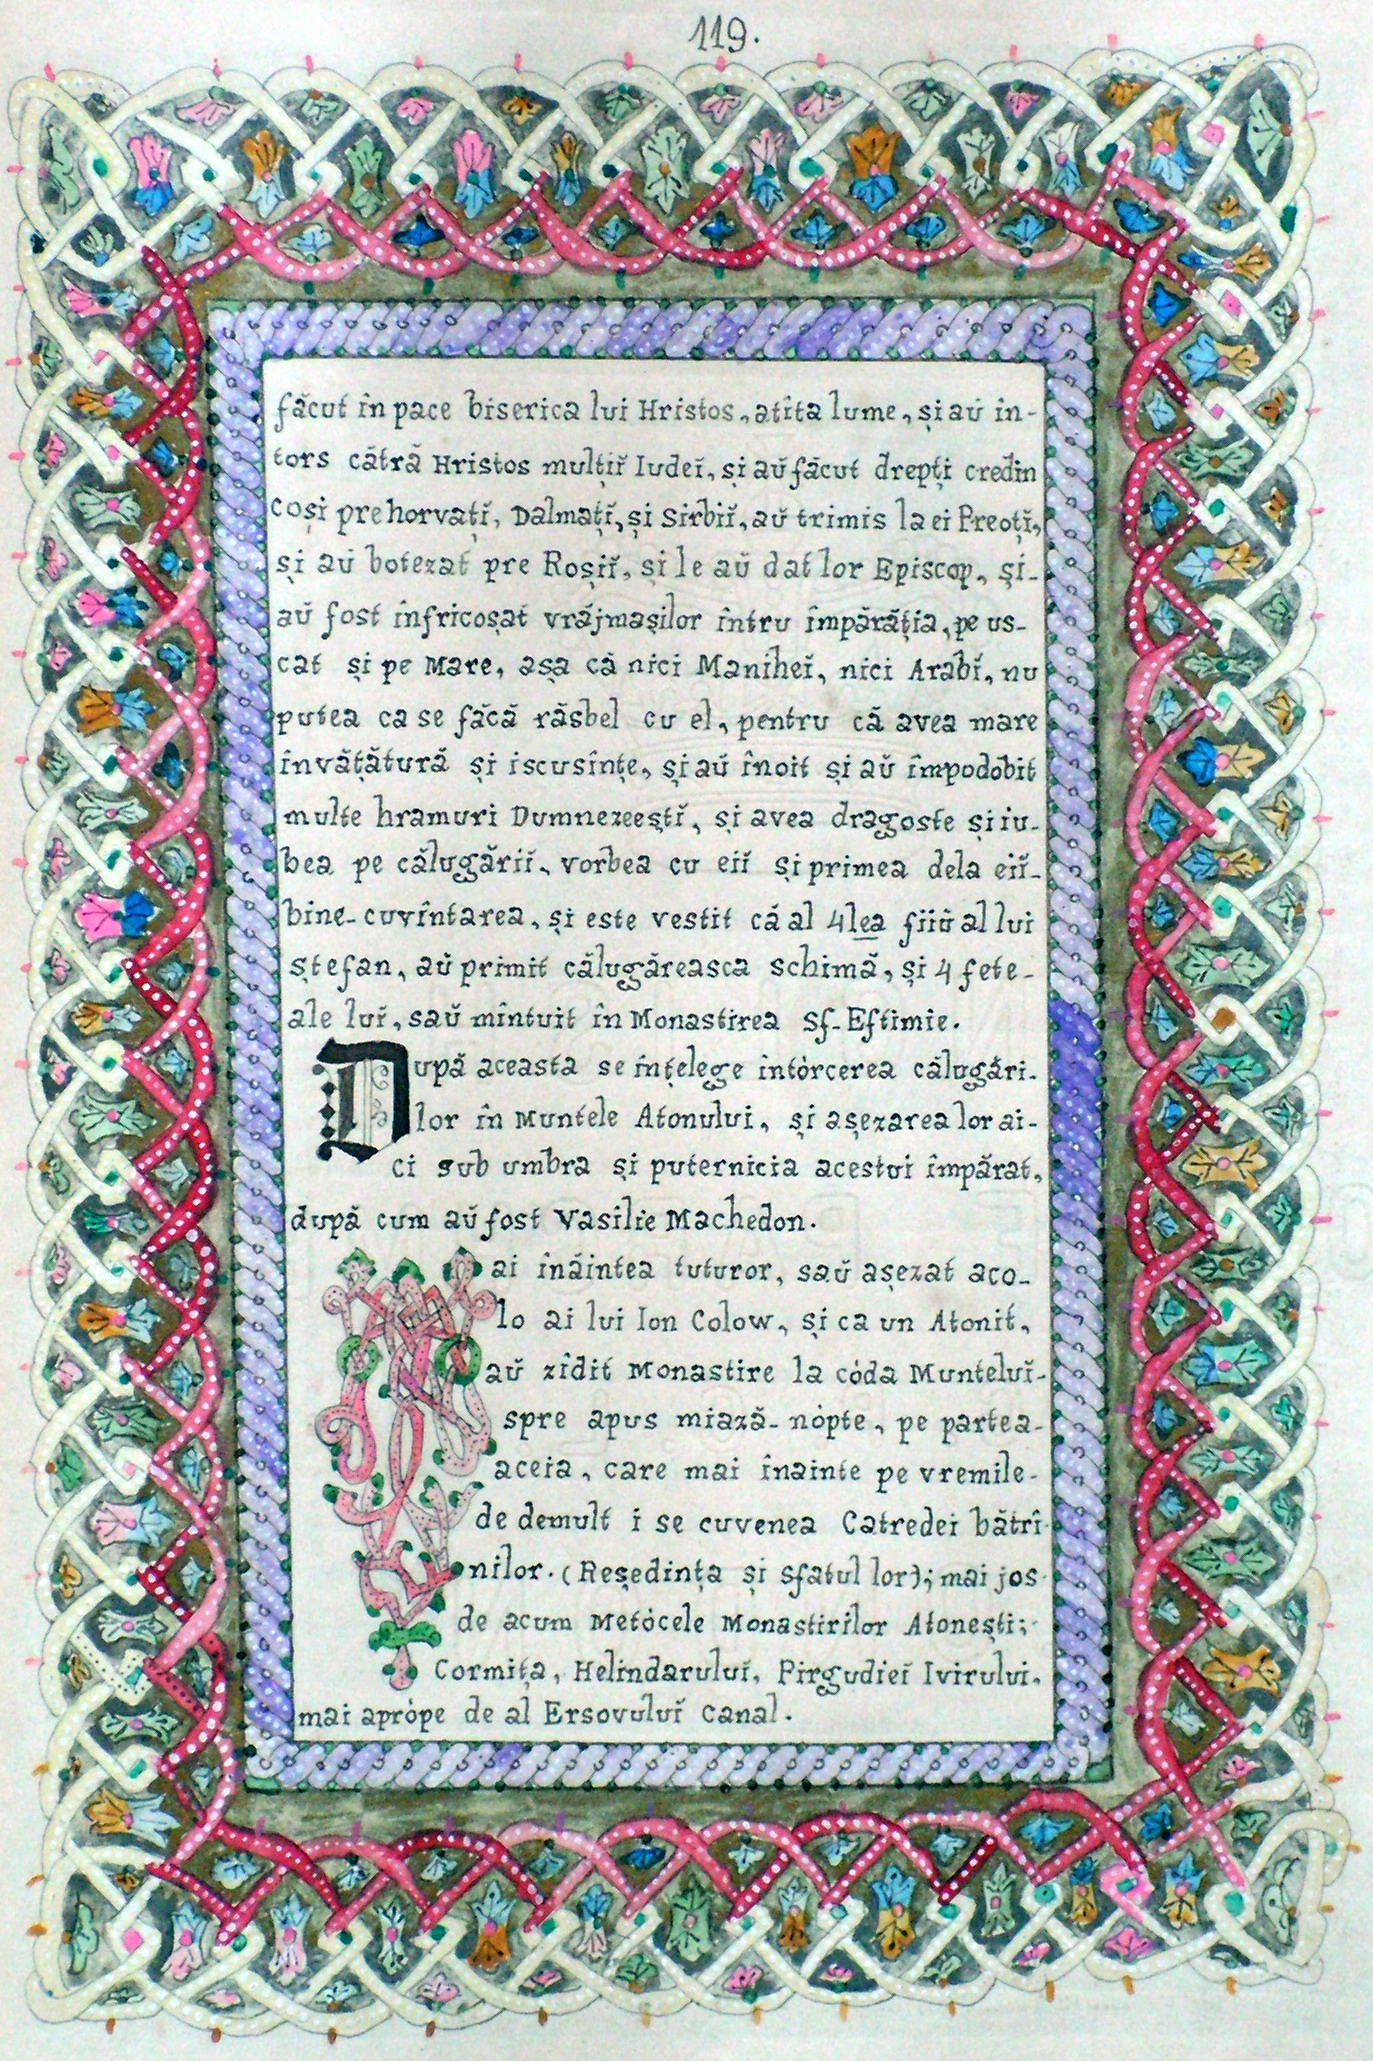 119.
făcut în pace biserica lui Hristos, atîta lume, și aŭ în-
tors cătră Hristos mulțiĭ Iudeĭ, și aŭ făcut drepți credin
coși pre horvațĭ, Dalmațĭ, și Sirbiĭ, aŭ trimis la ei Preoțĭ,
și aŭ botezat pre Roșiĭ, și le aŭ dat lor Episcop, și-
aŭ fost înfricoșat vrăjmașilor întru împărăția, pe us-
cat și pe Mare, așa că nici Maniheĭ, nici Arabĭ, nu
putea ca se făcă răsbel cu el, pentru că avea mare
învățătură și iscusințe, și aŭ înoit și aŭ împodobit
multe hramuri Dumnezeeștĭ, și avea dragoste și iu-
bea pe călugăriĭ, vorbea cu eiĭ și primea dela eiĭ-
bine-cuvîntarea, și este vestit că al 4lea fiiŭ al lui
Ștefan, aŭ primit călugăreasca schimă, și 4 fete-
ale luĭ, saŭ mîntuit în Monastirea Sf-Eftimie.
După aceasta se înțelege intórcerea călugări-
lor în Muntele Atonului, și așezarea lor ai-
ci sub umbra și puternicia acestui împărat,
după cum aŭ fost Vasilie Machedon.
Mai înăintea tuturor, saŭ așezat aco-
lo ai lui Ion Colow, și ca un Atonit,
aŭ zîdit Monastire la códa Munteluĭ-
spre apus miază-nópte, pe partea-
aceia, care mai înainte pe vremile-
de demult i se cuvenea Catredei bătrî-
nilor. (Reședința și sfatul lor); mai jos
de acum Metócele Monastirilor Atonești;
Cormița, Helindaruluĭ, Pirgudieĭ Ivirului,
mai aprópe de al Ersovuluĭ canal.